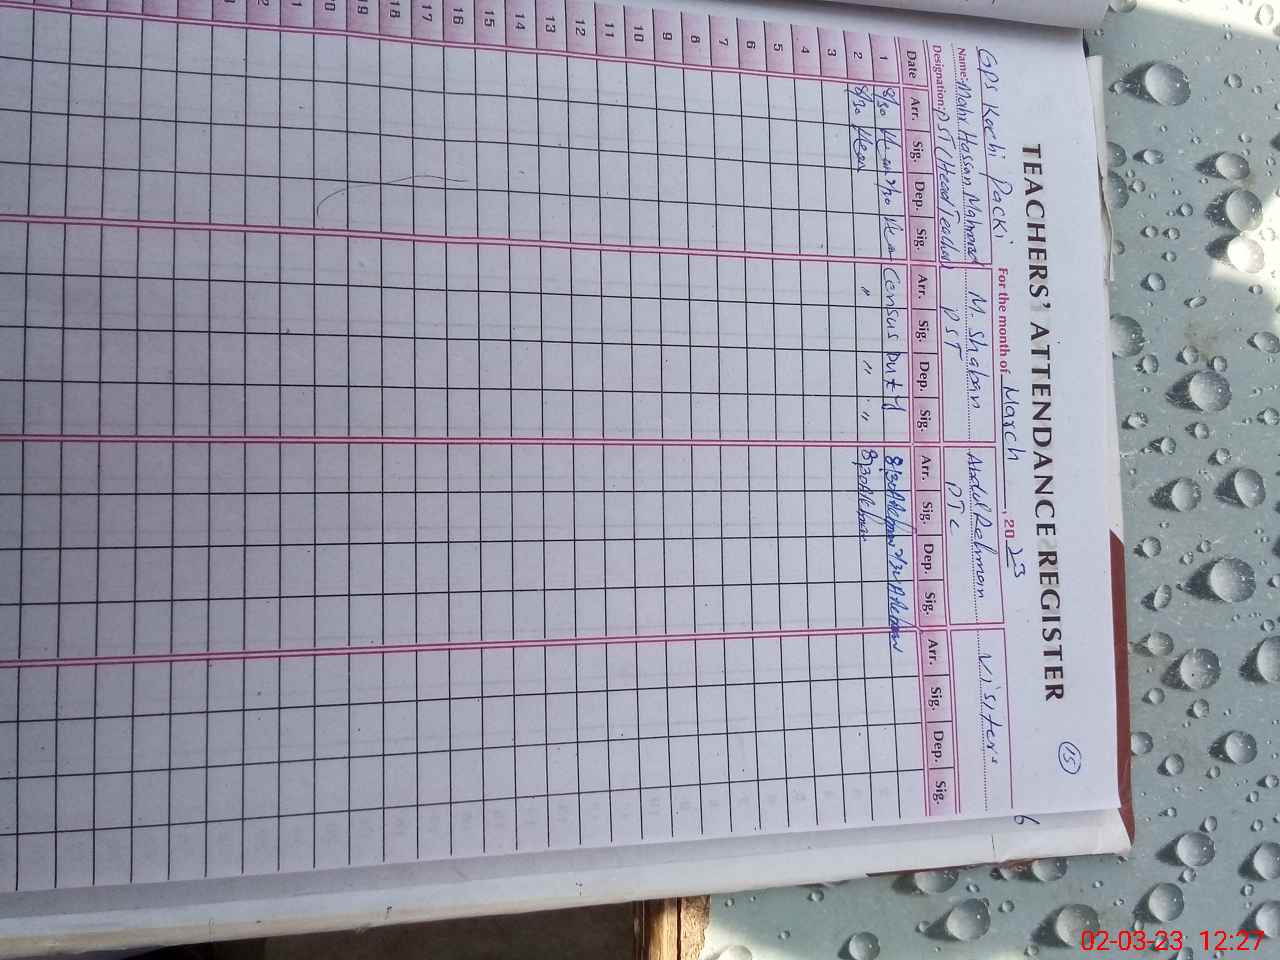 TEACHERS' ATTENDANCE REGISTER
15
6
GPS Kochi Packi For the month of March, 2023
Name: Hassan Mahmood M. Shaban Abdul Rehman Visiters
Designation: PST (Head Teacher) PST PTC
Date Arr. Sig. Dep. Sig. Arr. Sig. Dep. Sig. Arr. Sig. Dep. Sig. Arr. Sig. Dep. Sig.
1 8/30 Census Duty 8/30
2 8/30 " " " 8/30
3
4
5
6
7
8
9
10
11
12
13
14
15
16
17
18
19
20
02-03-23 12:27